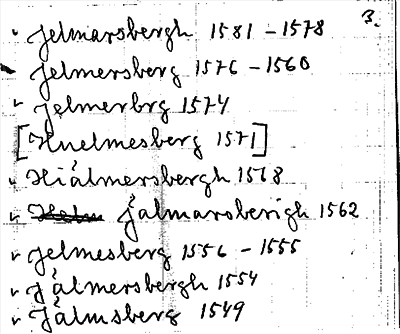 3.
Jelmarsbergh 1581 - 1578
Jelmersberg 1576 - 1560
Jelmerbrg 1574
[Huelmesberg 1571]
Hiálmersbergh 1568
Jalmarsberigh 1562
Jelmesberg 1556 - 1555
Jálmersbergh 1554
Jálmsberg 1549